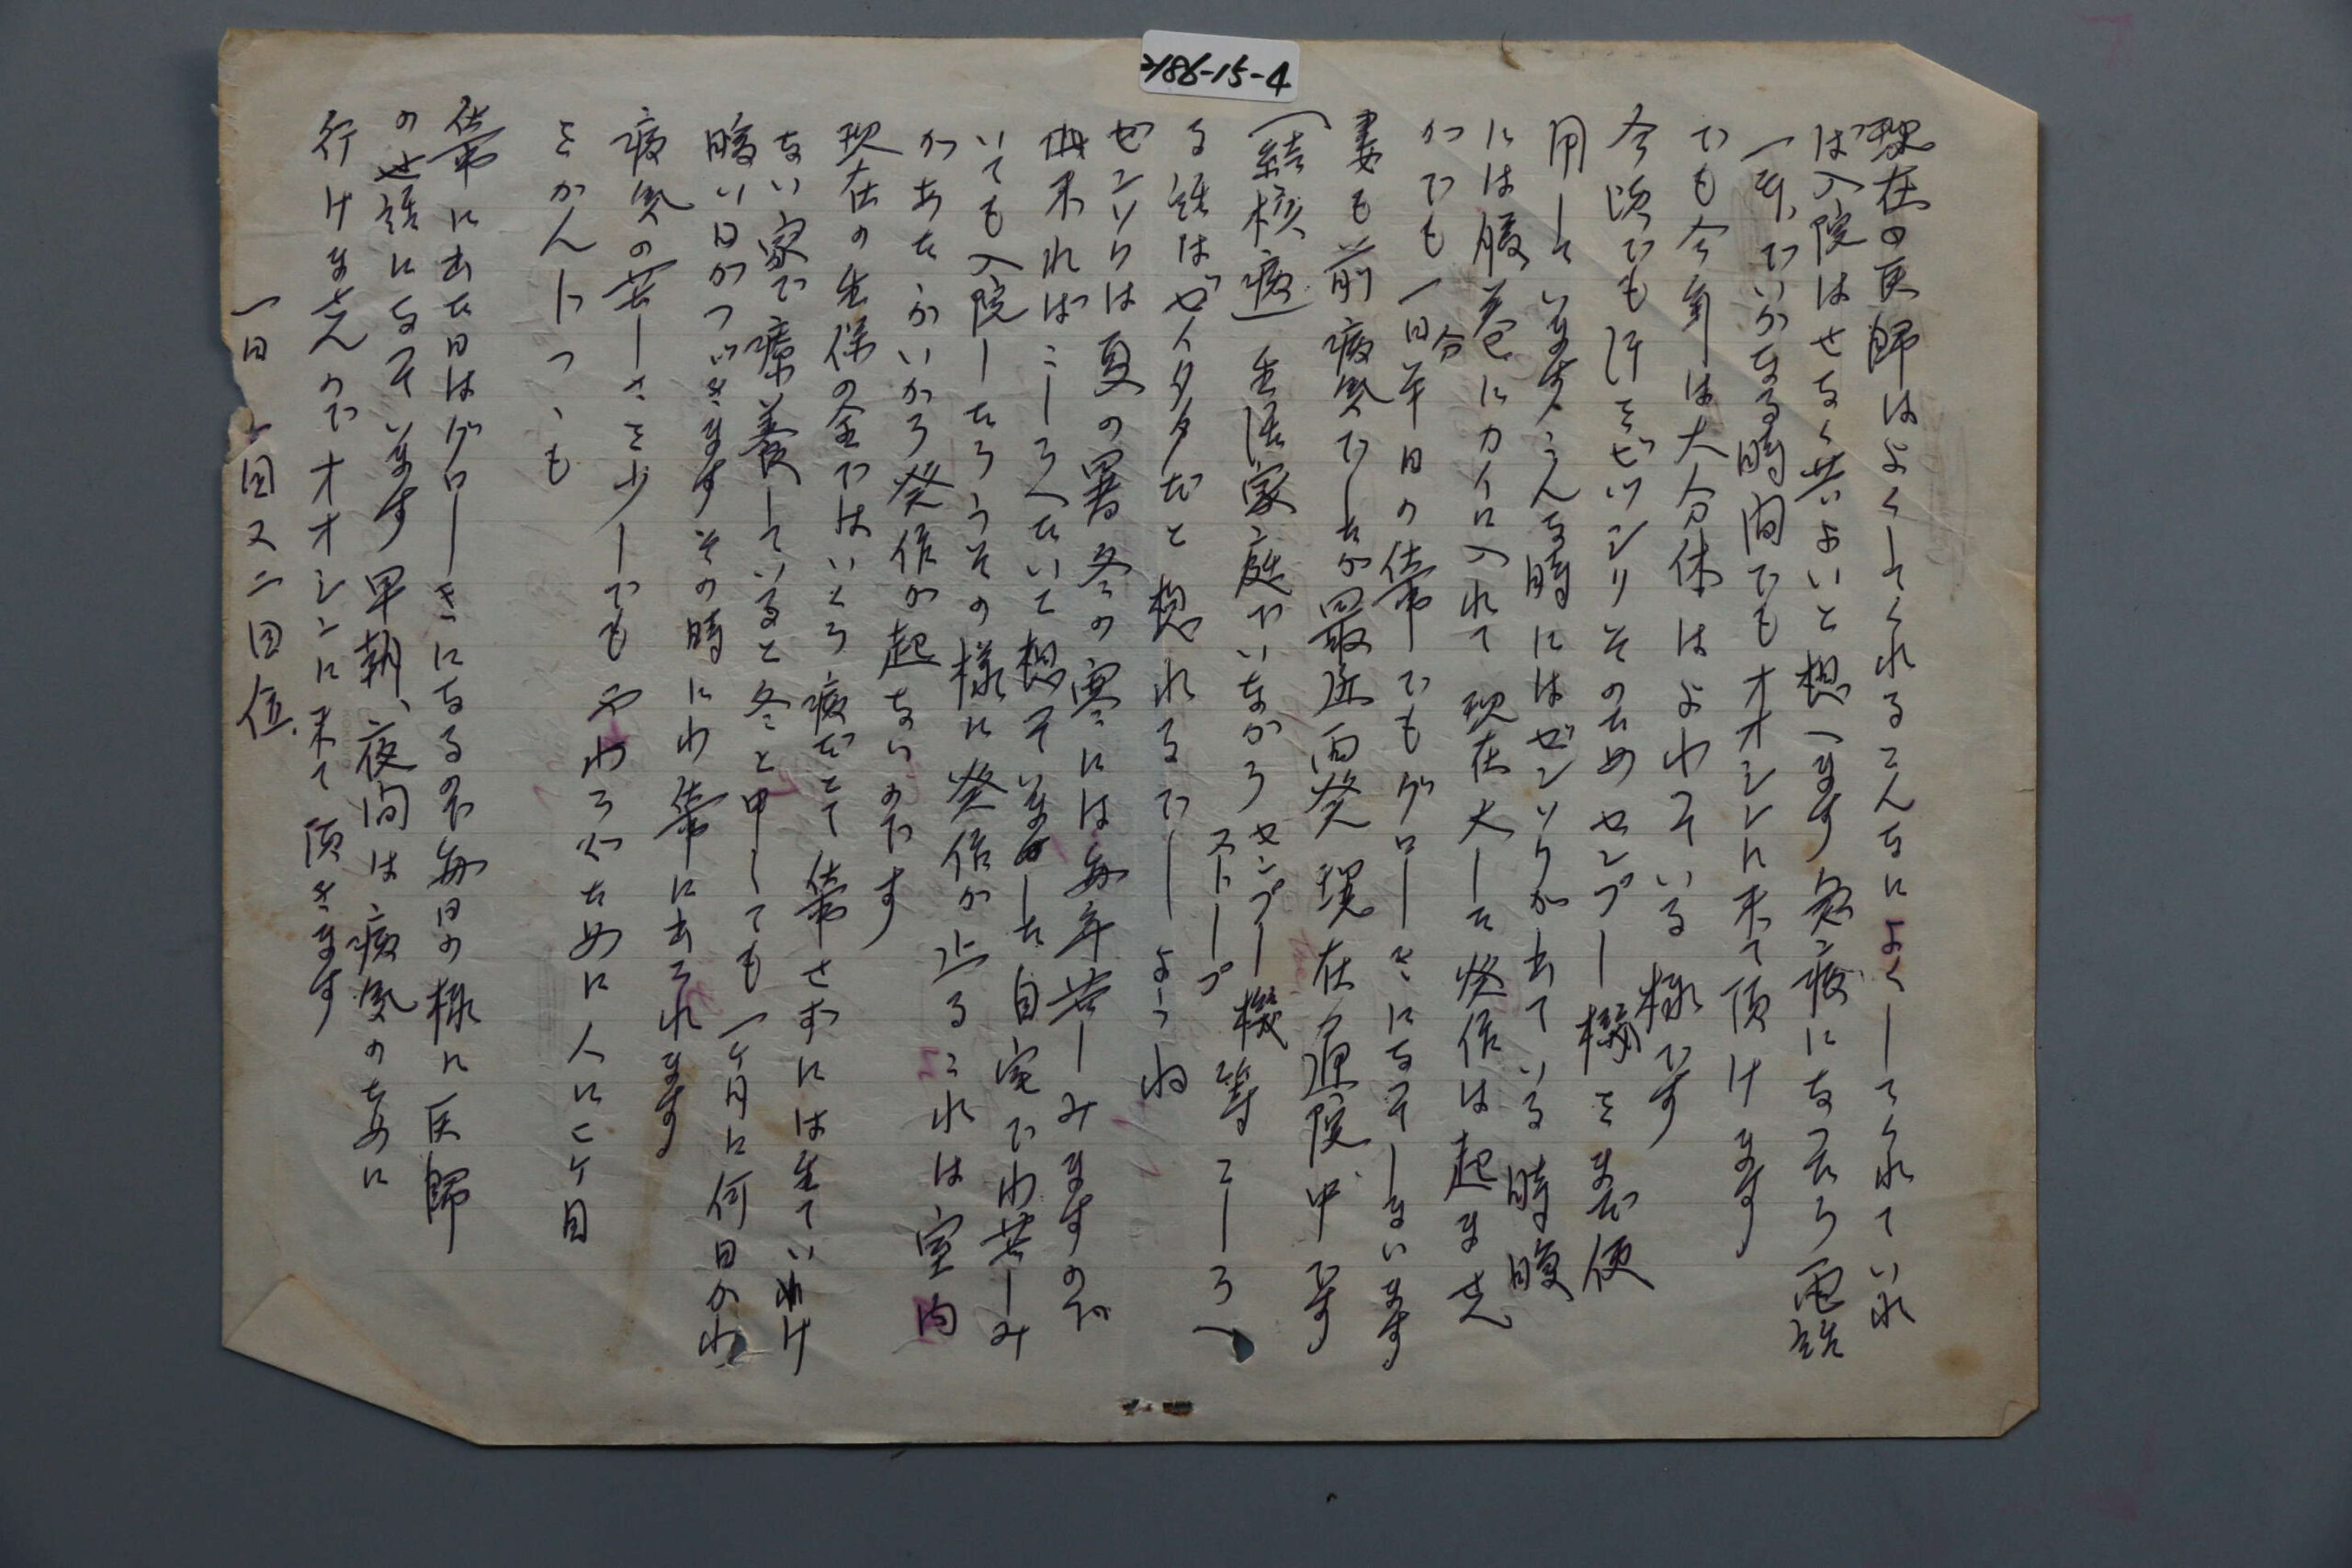 186-15-4
現在の医師はよくしてくれるこんなによくしてくれていれ
ば入院はせなく共いよいと想います 急病になったら電話
一本でいかなる時間でもオオシンに来て頂けます
でも今年は大分体はよわっている様です
今頃でも汗をビッシリそのためセンプー機をまだ使
用しています こんな時にはゼンソクが出ている時腹
には腹巻にカイロ入れて 現在大した発作は起ません
がでも一日半日分の仕事でもグローきになってしまいます
妻も前病気でしたが最近再発 現在通院中です
(結核病) 生活家庭でいながら センプー機 ストーブ 等こしらへ
る話はゼイタクだと想れるでしようね
ゼンソクは夏の暑 冬の寒には毎年苦しみますので
出来ればこしらへたいと想っていました 自宅でわ苦しみ
いても入院したらうその様に発作が止る これは室内
があたゝかいから発作が起ないのです
現在の生保の金ではいくら病だとて 仕事せずには生ていかれ
ない家で療養していると冬と申しても一ヶ月に何日かわ
暖い日がつゞきます その時にわ仕事に出られます
病気の苦しさを少しでもやわらがために人に二ケ目
をかんじつゝも
仕事に出た日はグローきになるので毎日の様に医師
の世話になっています 早朝、夜間は病気のために
行けませんのでオオシンに来て頂きます
一日 一回又二回位